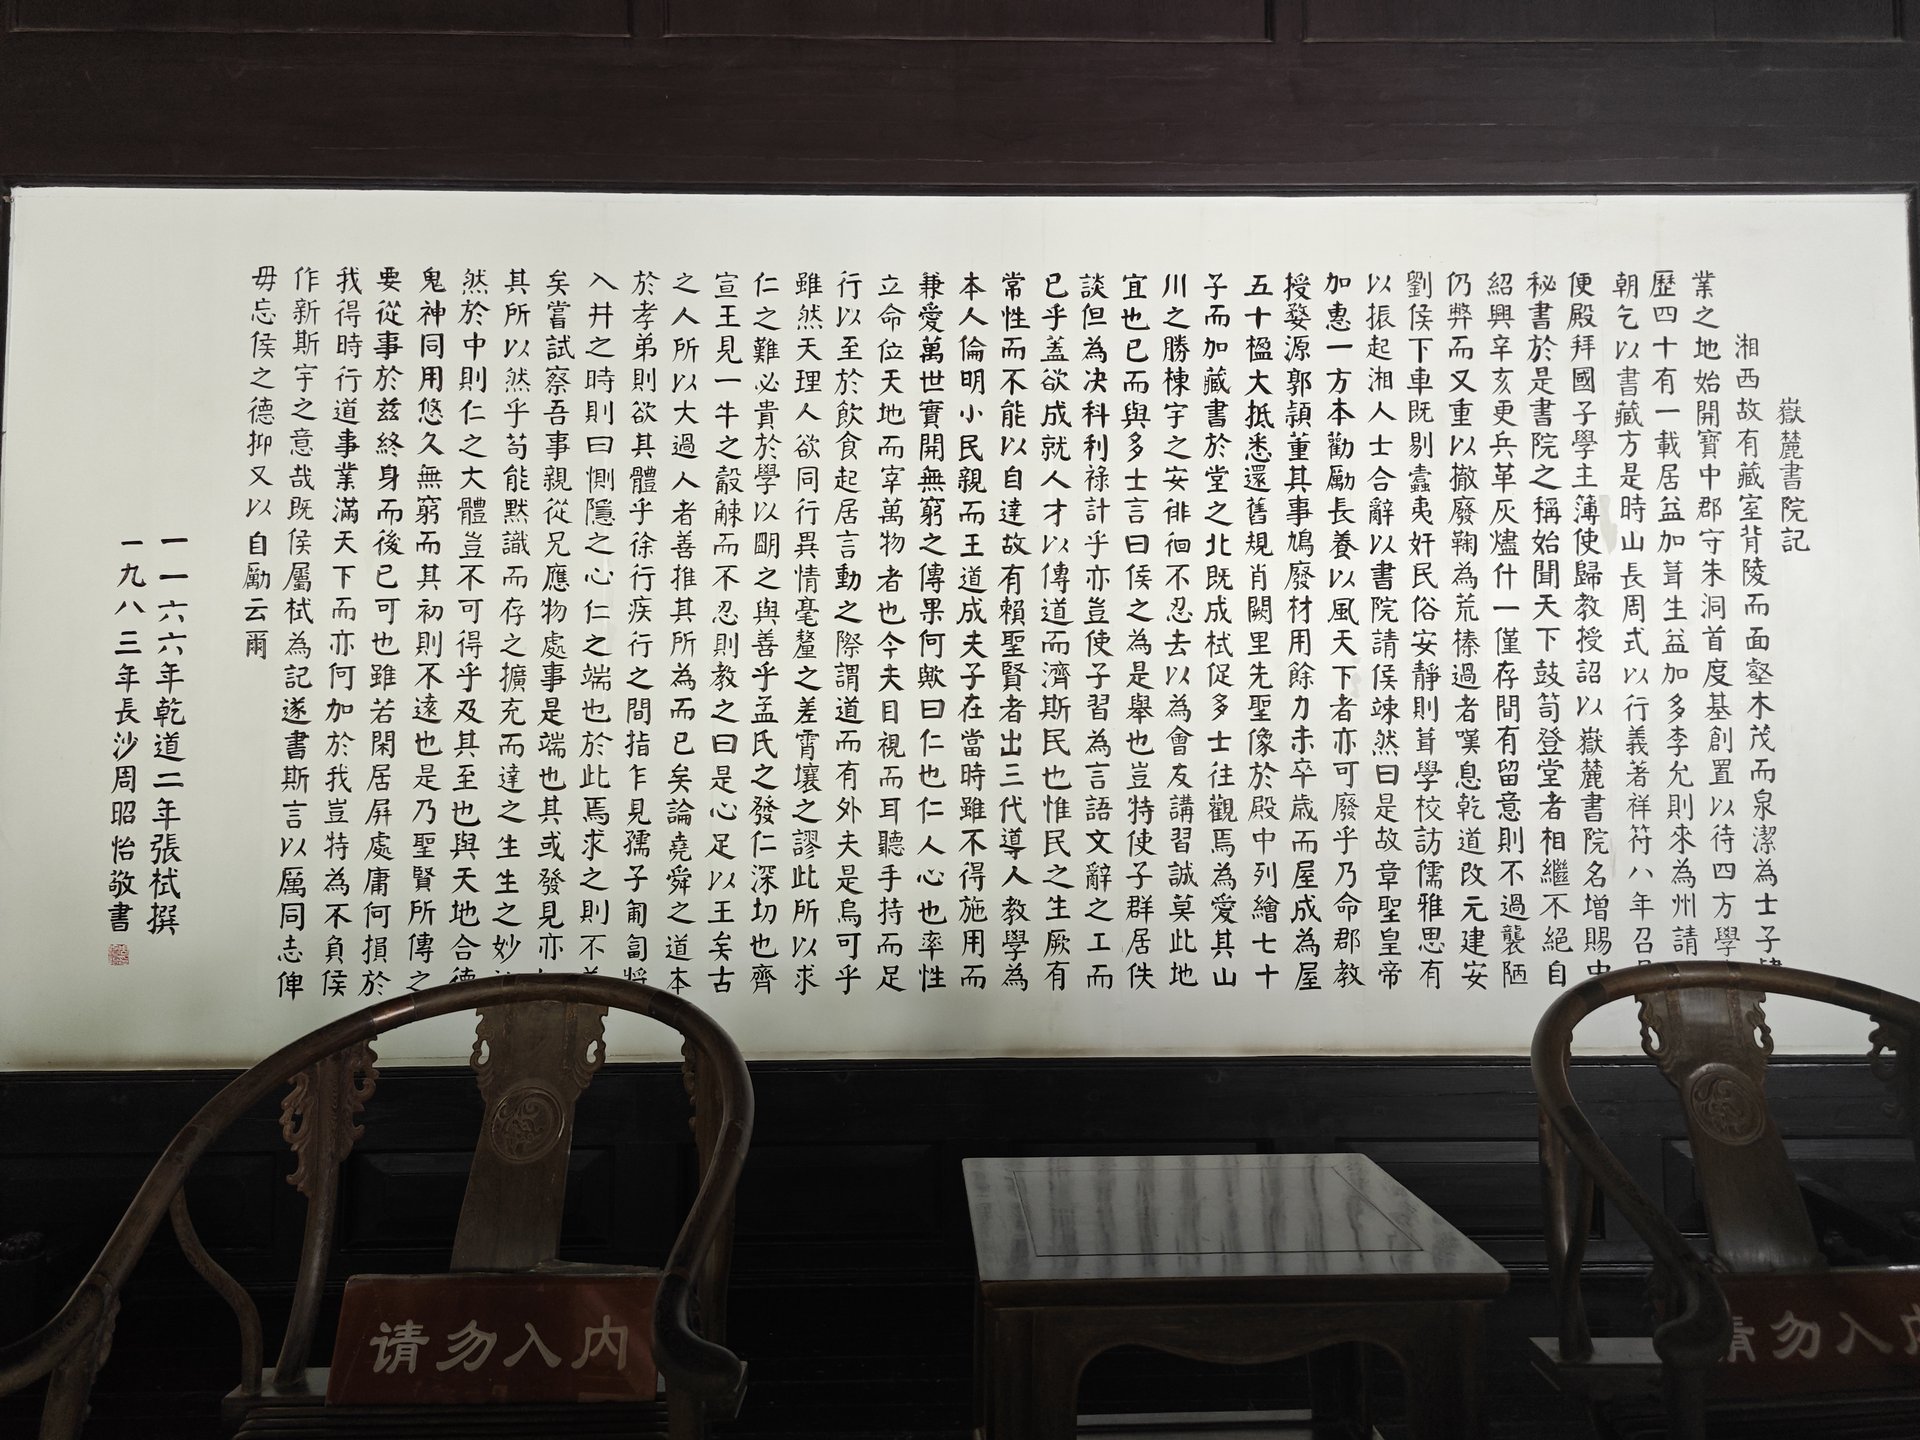 嶽麓書院記
湘西故有藏室背陵而面壑木茂而泉潔為士子肄
業之地始開寶中郡守朱洞首度基創置以待四方學
歷四十有一載居益加葺生益加多李允則來為州請
朝乞以書藏方是時山長周式以行義著祥符八年召見
便殿拜國子學主簿使歸教授詔以嶽麓書院名增賜中
秘書於是書院之稱始聞天下鼓笥登堂者相繼不絕自
紹興辛亥更兵革灰燼什一僅存間有留意則不過襲陋
仍弊而又重以撤廢鞠為荒榛過者嘆息乾道改元建安
劉侯下車既剔蠹夷奸民俗安靜則葺學校訪儒雅思有
以振起湘人士合辭以書院請侯竦然曰是故章聖皇帝
加惠一方本勸勵長養以風天下者亦可廢乎乃命郡教
授婺源郭穎董其事鳩廢材用餘力未卒歲而屋成為屋
五十楹大抵悉還舊規肖闕里先聖像於殿中列繪七十
子而加藏書於堂之北既成栻促多士往觀焉為愛其山
川之勝棟宇之安徘徊不忍去以為會友講習誠莫此地
宜也已而與多士言曰侯之為是舉也豈特使子群居佚
談但為決科利祿計乎亦豈使子習為言語文辭之工而
已乎蓋欲成就人才以傳道而濟斯民也惟民之生厥有
常性而不能以自達故有賴聖賢者出三代導人教學為
本人倫明小民親而王道成夫子在當時雖不得施用而
兼愛萬世實開無窮之傳果何歟曰仁也仁人心也率性
立命位天地而宰萬物者也今夫目視而耳聽手持而足
行以至於飲食起居言動之際謂道而有外夫是烏可乎
雖然天理人欲同行異情毫釐之差霄壤之謬此所以求
仁之難必貴於學以明之與善乎孟氏之發仁深切也齊
宣王見一牛之觳觫而不忍則教之曰是心足以王矣古
之人所以大過人者善推其所為而已矣論堯舜之道本
於孝弟則欲其體乎徐行疾行之間指乍見孺子匍匐將
入井之時則曰惻隱之心仁之端也於此焉求之則不差
矣嘗試察吾事親從兄應物處事是端也其或發見亦知
其所以然乎苟能默識而存之擴充而達之生生之妙
然於中則仁之大體豈不可得乎及其至也與天地合德
鬼神同用悠久無窮而其初則不遠也是乃聖賢所傳之
要從事於茲終身而後已可也雖若閑居屏處庸何損於
我得時行道事業滿天下而亦何加於我豈特為不負侯
作新斯宇之意哉既侯屬栻為記遂書斯言以厲同志俾
毋忘侯之德抑又以自勵云爾
一一六六年乾道二年張栻撰
一九八三年長沙周昭怡敬書
请勿入内
请勿入内